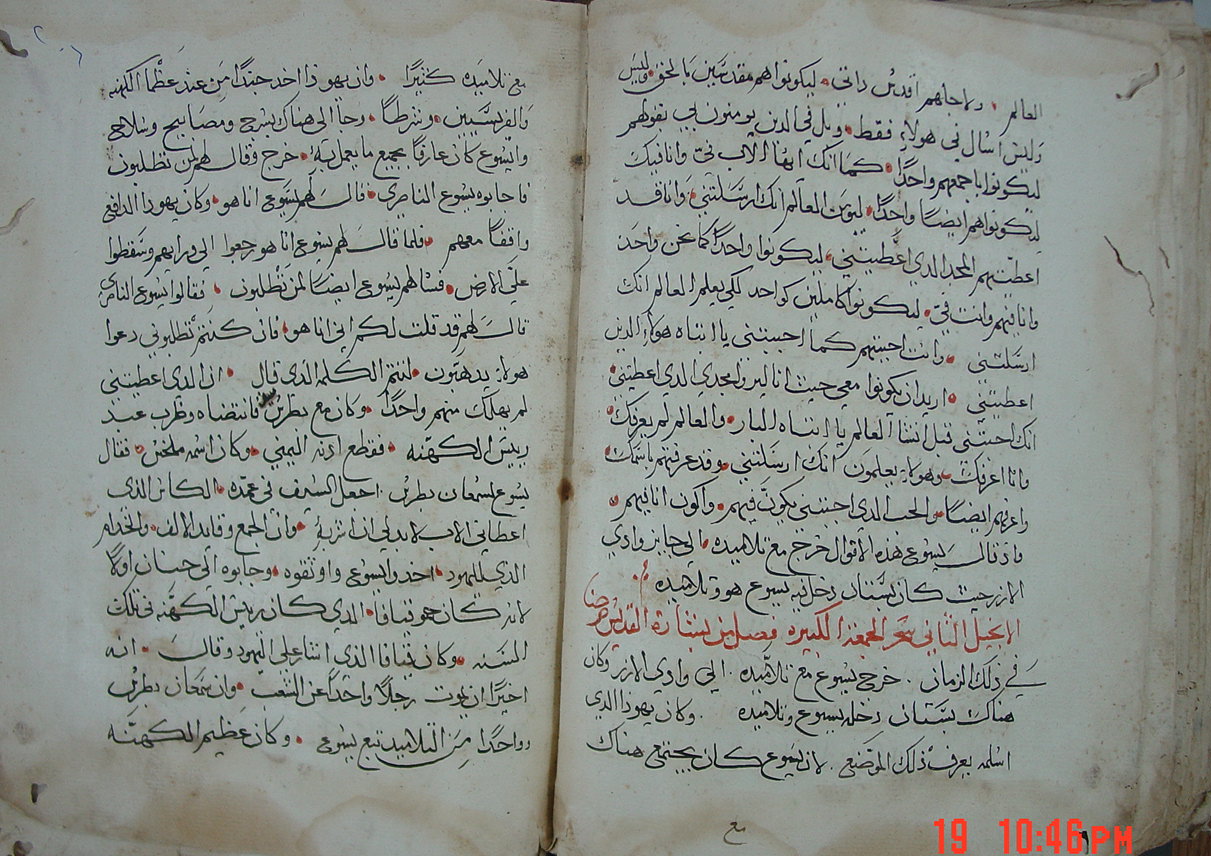 العالم • ولاجلهم اقدس داتي • ليكونوا هم مقدسين بالحق • وليس
وليس اسال في هولاء فقط • وبل في الدين يومنون بي بقولهم
ليكونوا باجمعهم واحدًا • كما انك ايها الاب فيّ وانا فيك
ليكونوا هم ايضًا واحدًا • ليومن العالم انك ارسلتني • وانا قد
اعطيتهم المجد الدي اعطيتني • ليكونوا واحدًا كما نحن واحد
وانا فيهم وانت فيّ • ليكونوا كاملين كواحد لكي يعلم العالم انك
ارسلتني • وانت احببتهم كما احببتني يا ابتاه هولاء الدين
اعطيتني • اريد ان يكونوا معي حيث انا ليروا مجدي الدي اعطيتني •
انك احببتني قبل انشا العالم يا ابتاه البار • والعالم لم يعرفك •
وانا اعرفك • وهولاء يعلمون انك ارسلتني • وقد عرفتهم باسمك •
واعرفهم ايضًا • والحب الدي احببتني يكون فيهم • واكون انا فيهم •
واد قال يسوع هده الاقوال خرج مع تلاميده • الي جايز وادي
الارز حيت كان بستان دخل فيه يسوع هو وتلاميده
الانجيل التاني سحر الجمعه الكبيره فصل من بشارة القديس يوحنا
في ذلك الزمان . خرج يسوع مع تلاميده . الي وادي الارز وكان
هناك بستان دخله يسوع وتلاميده . وكان يهودا الدي
اسلمه يعرف ذلك الموضع . لان يسوع كان يجتمع هناك
مع
مع تلاميده كثيرًا • وان يهودا اخد جندًا من عند عظما الكهنه
والفريسيين • وشرطًا • وجا الي هناك بسرج ومصابيح وسلاح
وايسوع كان عارفًا بجميع ما يعمل به • خرج وقال لهم من تطلبون
فاجابوه يسوع الناصري • قال لهم يسوع انا هو • وكان يهودا الدافع
واقفًا معهم • فلما قال لهم يسوع انا هو رجعوا الي ورايهم وسقطوا
علي الارض • فسالهم يسوع ايضًا لمن تطلبون • فقالوا يسوع الناصري
قال لهم قد قلت لكم اني انا هو • فان كنتم تطلبوني دعوا
هولاء يدهبون • لتتم الكلمه الدي قال • ان الدي اعطيتني
لم يهلك منهم واحدًا • وكان مع بطرس فانتضاه وضرب عبد
رييس الكهنه • فقطع ادنه اليمني • وكان اسمه ملخس • فقال
يسوع لسمعان بطرس . اجعل السيف في غمده • الكاس الدي
اعطاني الاب لا بد لي ان اشربه • وان الجمع وقايد الالف • والخدام
الدي لليهود • اخدوا يسوع واوتقوه • وجابوه الي حنان اولًا
لانه كان حمو قيافا • الدي كان رييس الكهنه في تلك
السنه • وكان قيافا الدي اشار علي اليهود وقال • انه
اخيرًا ان يموت رجلًا واحدًا عن الشعب • وان سمعان بطرس
وواحدًا من التلاميد تبع يسوع • وكان عظيم الكهنه
19 10:46PM